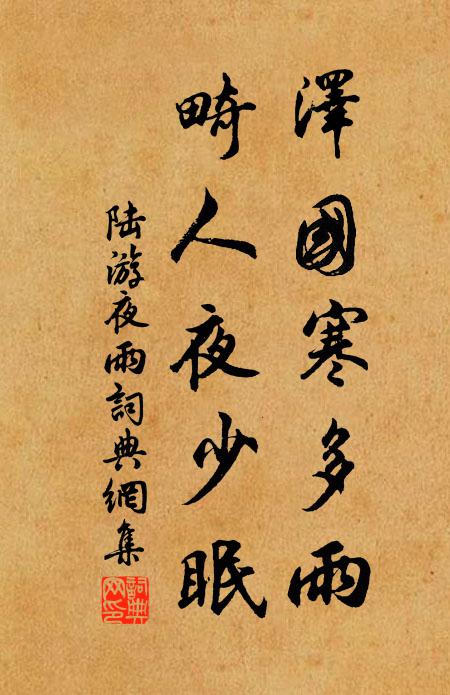 澤國寒多雨
畸人夜少眠
陆游夜雨詞典網集
詞典網印